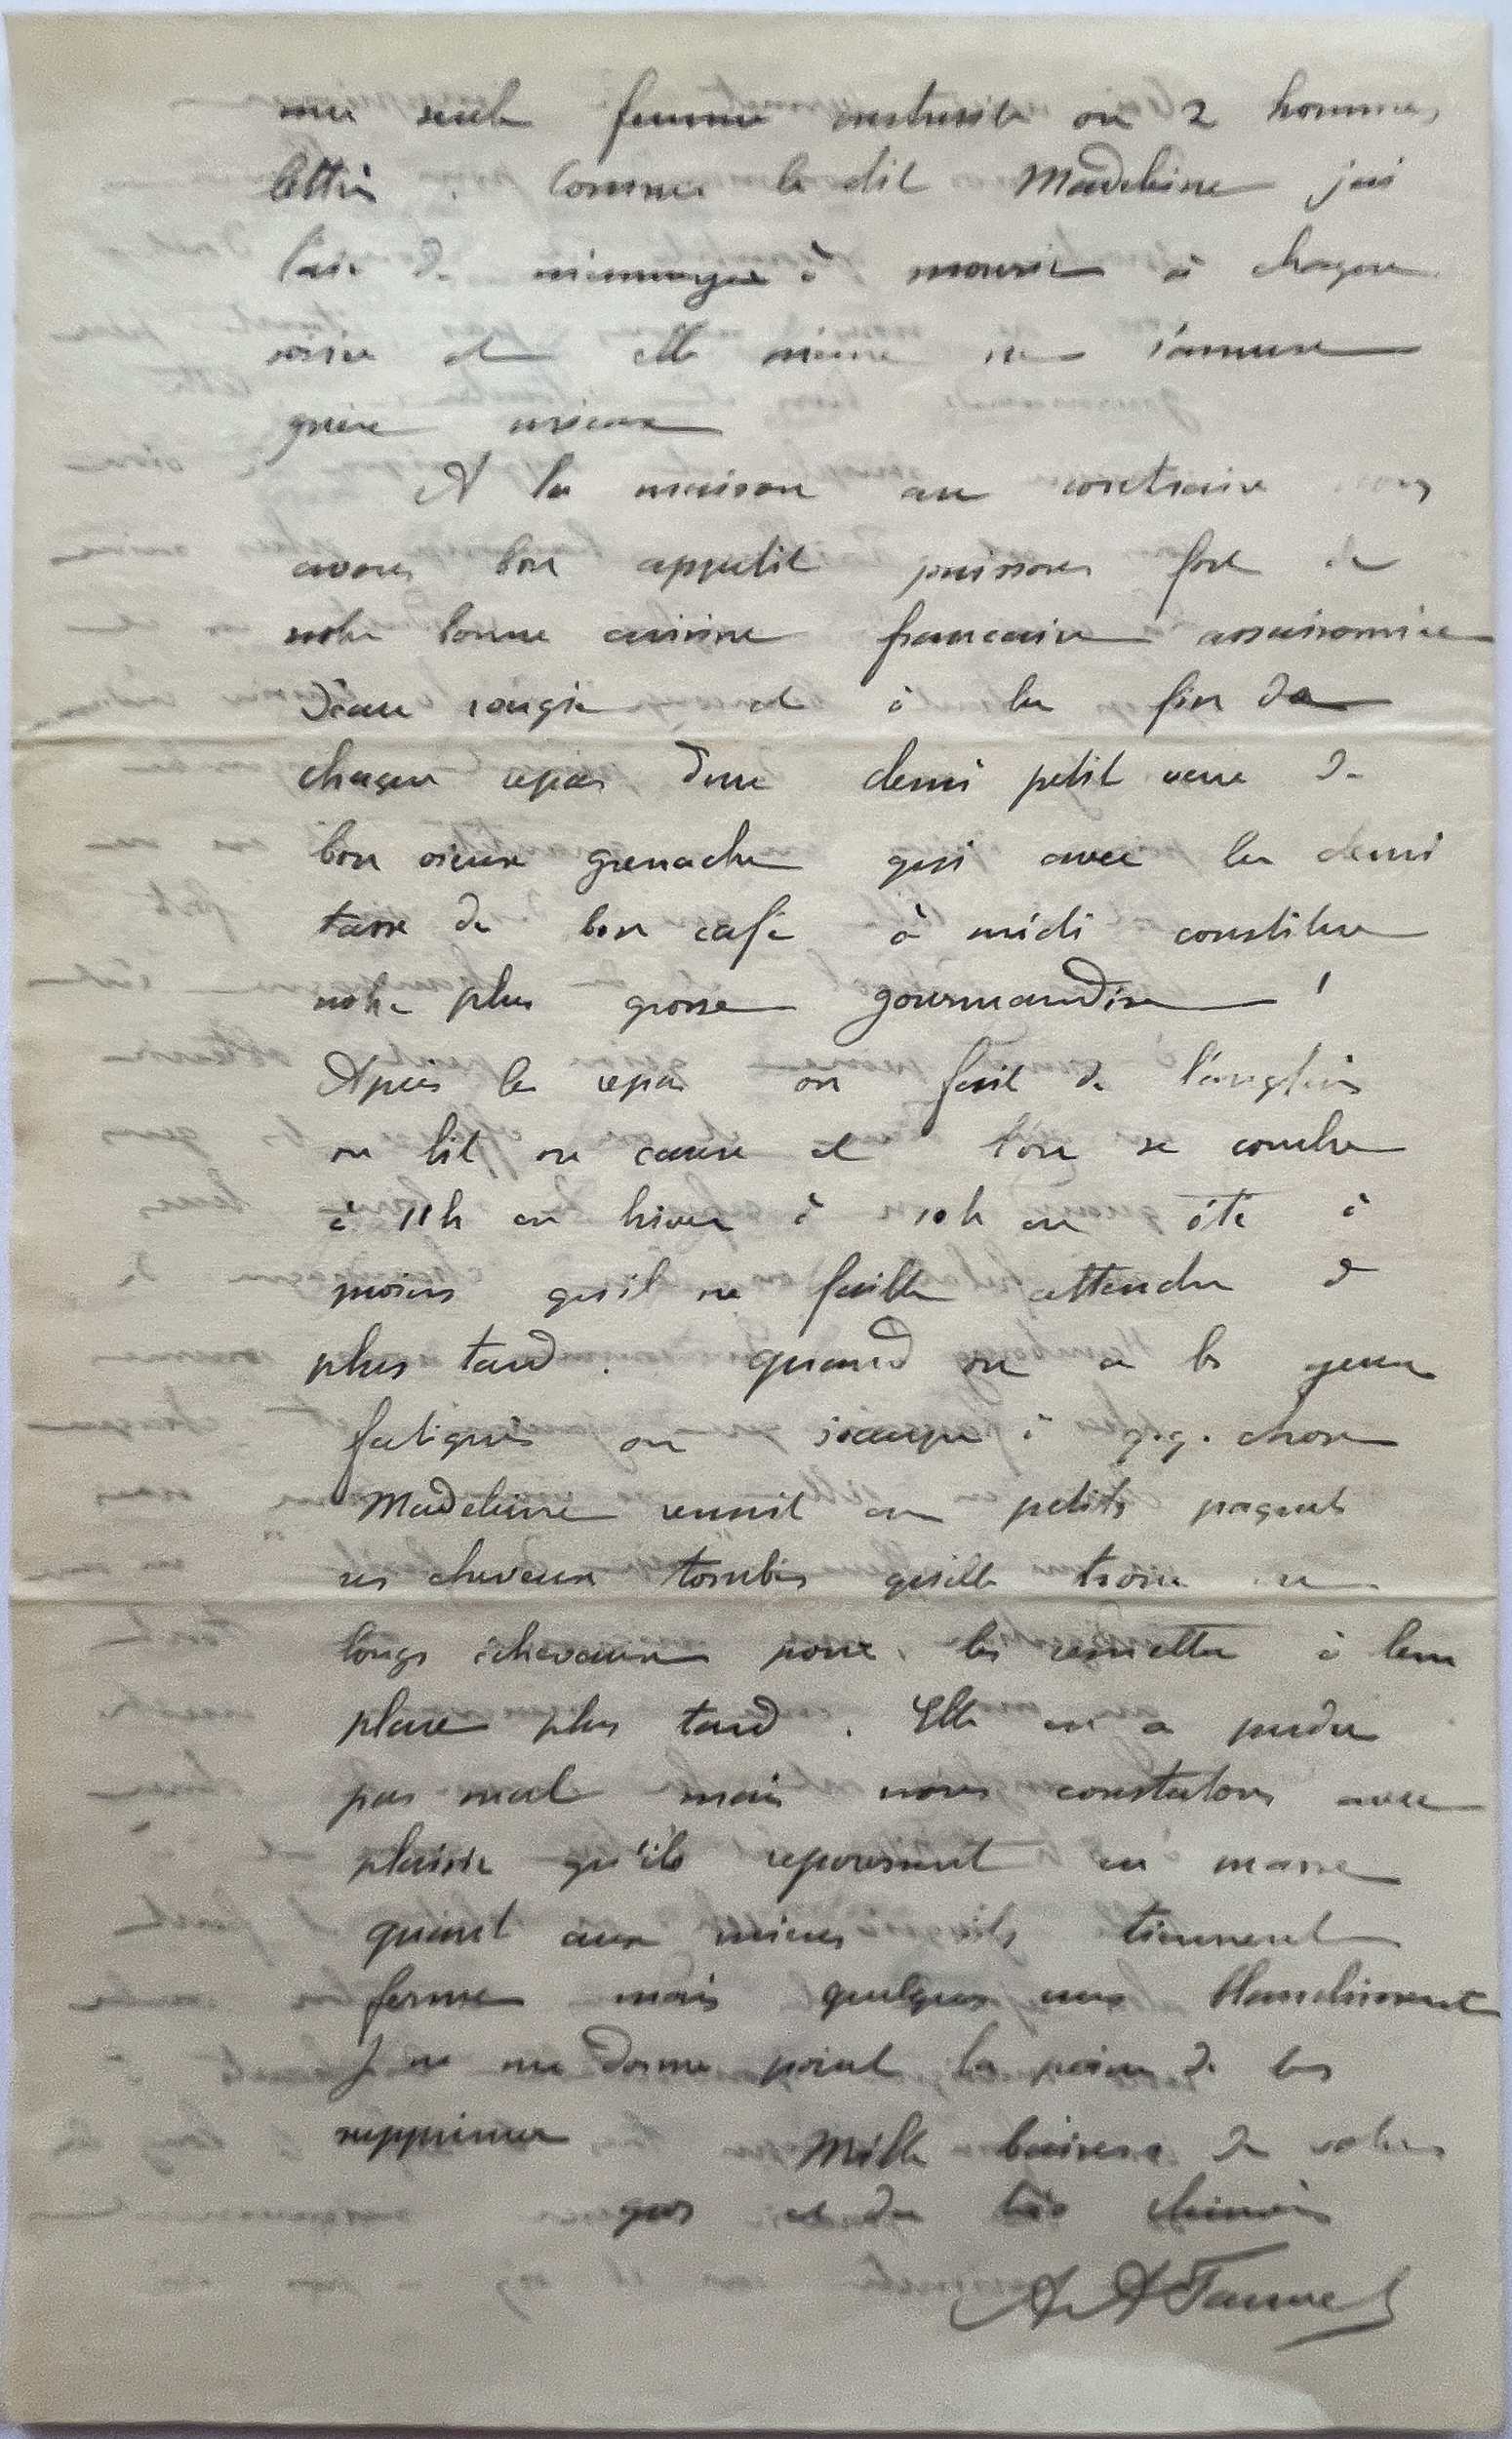 une seule femme instruite ou 2 hommes
lettrés . Comme le dit Madeleine j'ai
l'air de m'ennuyer à mourir à chaque
visite et elle même ne s'amuse
guère mieux
A la maison au contraire nous
avons bon appétit puissons fort de
notre bonne cuisine française assaisonnée
d'eau rougie et à la fin de
chaque repas d'une demi petit verre de
bon vieux grenache qui avec la demi
tasse de bon café à midi constitue
notre plus grosse gourmandise !
Après le repas on fait de l'anglais
on lit on cause et l'on se couche
à 11h en hiver à 10h en été à
moins qu'il ne faille attendre d
plus tard . quand on a les yeux
fatigués on s'occupe à q.q. chose
Madeleine réunit en petits paquets
ses cheveux tombés qu'elle trouve en
longs écheveaux pour les remettre à leur
place plus tard . Elle en a perdu
pas mal mais nous constatons avec
plaisir qu'ils repoussent en masse
quant aux miens ils tiennent
ferme mais quelques uns blanchissent
Je ne me donne point la peine de les
supprimer Mille baisers de votre
gros et du très
A. A Fauvel